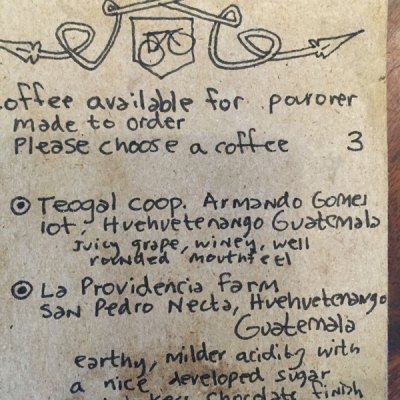 offee available for pourover
made to order
Please choose a coffee 3
Teogal coop. Armando Gomez
lot, Huehuetenango Guatemala
juicy grape, winey, well
rounded mouthfeel
La Providencia farm
San Pedro Necta, Huehuetenango
Guatemala
earthy, milder acidity with
a nice developed sugar
chocolate finish